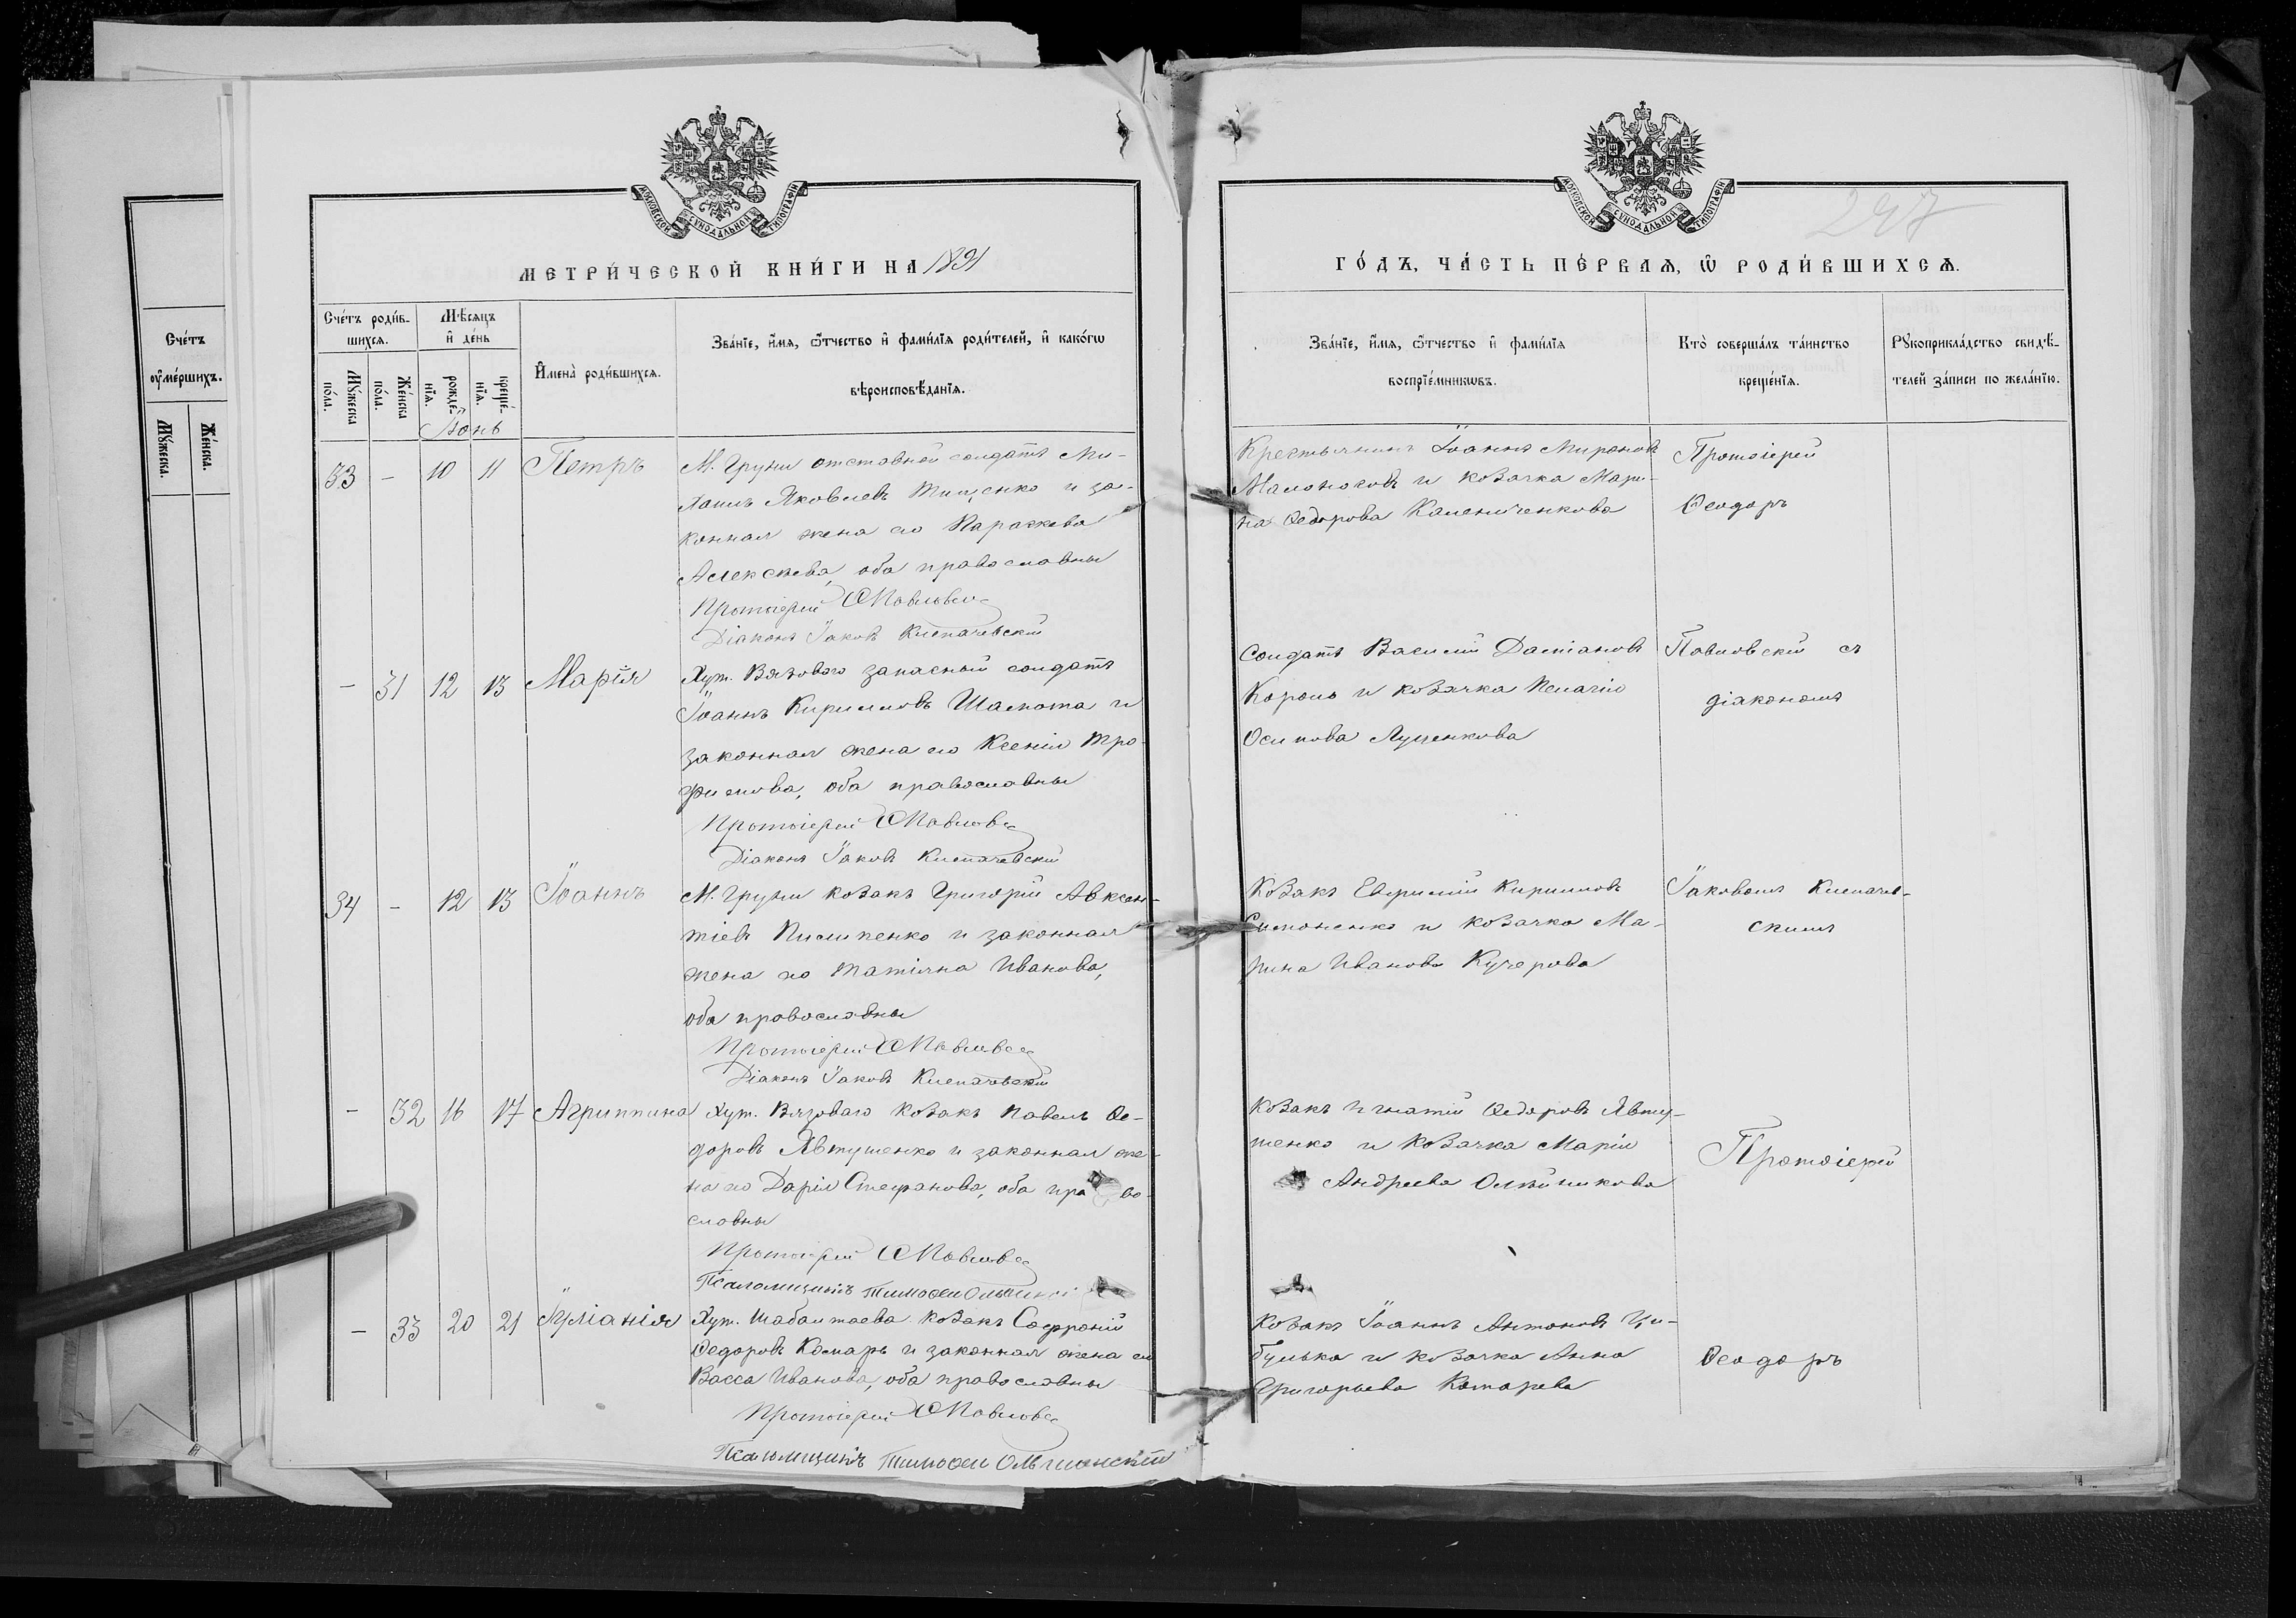 МОСКОВСКОЙ СѴНОДАЛЬНОЙ ТИПОГРАФІИ
МЕТРИ́ЧЕСКОЙ КНИ́ГИ НА 1891
Сче́тъ роди́в-
шихсѧ.
Мѣ́сѧцъ
и҆ де́нь
И҆мена̀ роди́вшихсѧ.
Зва́нїе, и҆́мѧ, ѻ҆́тчество и҆ фами́лїѧ роди́телей, и҆ како́гѡ
вѣроисповѣ́данїѧ.
Мꙋ́жеска
по́ла.
Же́нска
по́ла.
рожде́-
нїѧ.
креще́-
нїѧ.
Іюнь
33 - 10 11 Петръ
М. Груни отставной солдатъ Ми-
хаилъ Яковлевъ Тищенко и за-
конная жена его Параскева
Алексѣева, оба православны
Протоіерей Ѳ Павловс
Діаконъ Іаковъ Клепачевскій
- 31 12 13 Марія
Хут. Вязоваго запасный солдатъ
Іоаннъ Кирилловъ Шамота и
законная жена его Ксенія Тро-
фимова, оба православны
Протоіерей Ѳ Павловс
Діаконъ Іаковъ Клепачевскій
34 - 12 13 Іоаннъ
М. Груни козакъ Григорій Авксен-
тіевъ Пилипенко и законная
жена его Татіяна Иванова,
оба православны
Протоіерей Ѳ Павловс
Діаконъ Іаковъ Клепачевскій
- 32 16 17 Агриппина
Хут. Вязоваго козакъ Павелъ Ѳе-
доровъ Явтушенко и законная же-
на его Дарія Стефанова, оба право-
славны
Протоіерей Ѳ Павловс
Псаломщикъ Тимоѳей
- 33 20 21 Іуліанія
Хут. Шабалтаева козакъ Софроній
Ѳедоровъ Комарь и законная жена его
Васса Иванова, оба православны
Протоіерей Ѳ Павловс
Псаломщикъ Тимоѳей Ольшанскій
МОСКОВСКОЙ СѴНОДАЛЬНОЙ ТИПОГРАФІИ
247
ГО́ДЪ, ЧА́СТЬ ПЕ́РВАѦ, Ѽ РОДИ́ВШИХСѦ.
Зва́нїе, и҆́мѧ, ѻ҆́тчество и҆ фами́лїѧ
воспрїе́мникѡвъ.
Кто̀ соверша́лъ та́инство
креще́нїѧ.
Рꙋкоприкла́дство свидѣ́-
телей за́писи по жела́нїю.
Крестьянинъ Іоаннъ Мироновъ
Малоноговъ и козачка Мари-
на Ѳедорова Камениченкова
Протоіерей
Ѳеодоръ
Солдатъ Василій Даміановъ
Король и козачка Пелагія
Осипова Луценкова
Павловскій съ
діакономъ
Козакъ Евфимій Кирилловъ
Симоненко и козачка Ма-
рина Иванова Кучерова
Іаковомъ Клепачев-
скимъ
Козакъ Игнатій Ѳедоровъ Явту-
шенко и козачка Марія
Андреева Олѣйникова
Протоіерей
Козакъ Іоаннъ Антоновъ Ци-
булька и козачка Анна
Григорьева Комарева
Ѳеодоръ
Сче́тъ
оу҆ме́ршихъ.
Мꙋ́жеска.
Же́нска.